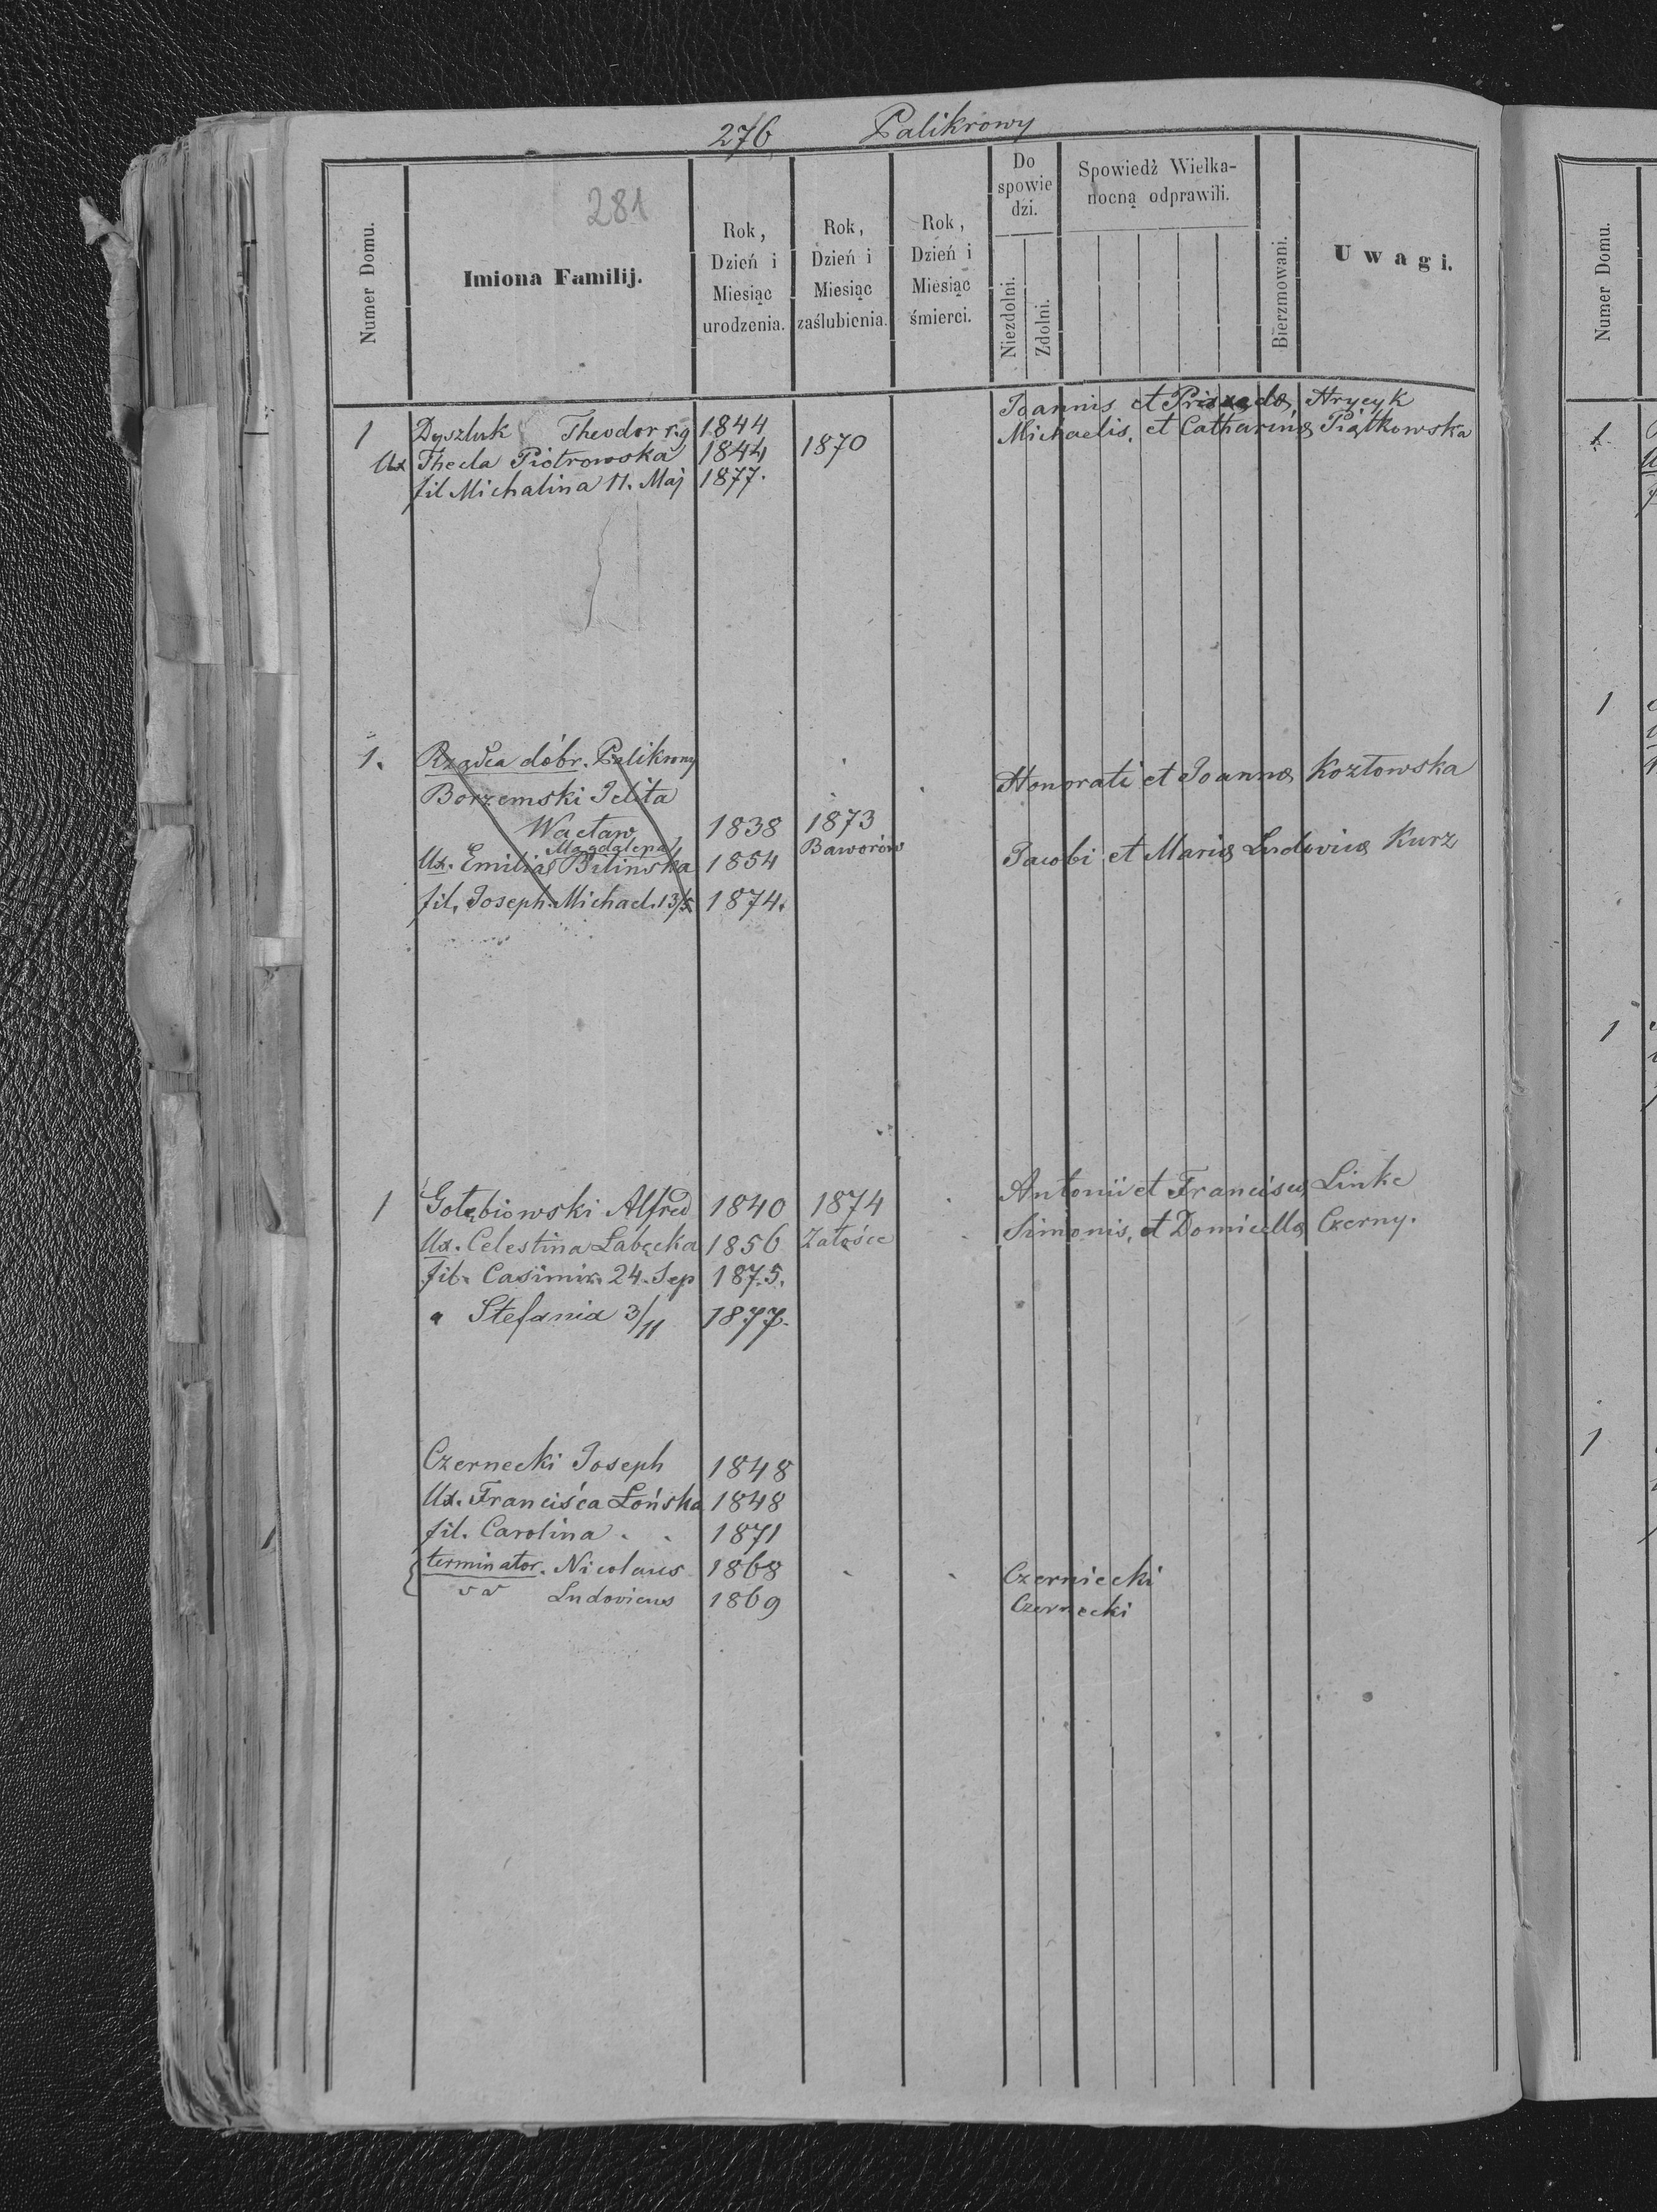 276 Palikrowy
281
Numer Domu.
Imiona Familij.
Rok, Dzień i Miesiąc urodzenia.
Rok, Dzień i Miesiąc zaślubienia.
Rok, Dzień i Miesiąc śmierci.
Do spowiedzi.
Niezdolni.
Zdolni.
Spowiedź Wielkanocną odprawili.
Bierzmowani.
Uwagi.
Numer Domu.
1 Dyszluk Theodor r.g 1844 Joannis et Hrycyk
Ux Thecla Piotrowska 1844 1870 Michaelis, et Catharinæ Piątkowska
fil Michalina 11. Maj 1877.
1. Rządca dóbr. Palikrowy
Borzemski Jelita Honorati et Joannæ Kozłowska
Wacław 1838 1873
Magdalena
Ux. Emilia Bilinska 1854 Baworów Jacobi et Mariæ Ludovicæ Kurz
fil. Joseph. Michael. 13/5 1874.
1 Gołębiowski Alfred 1840 1874 Antonii et Franciscæ Linke
Ux. Celestina Łabęcka 1856 Załośce Simonis, et Domicellæ Czerny.
fil. Casimir. 24. Sep 1875.
" Stefania 3/11 1877.
Czernecki Joseph 1848
Ux. Francisca Łońska 1848
1 fil. Carolina 1871
terminator. Nicolaus 1868 Czerniecki
Ludovicus 1869 Czernecki
1
1
1
1